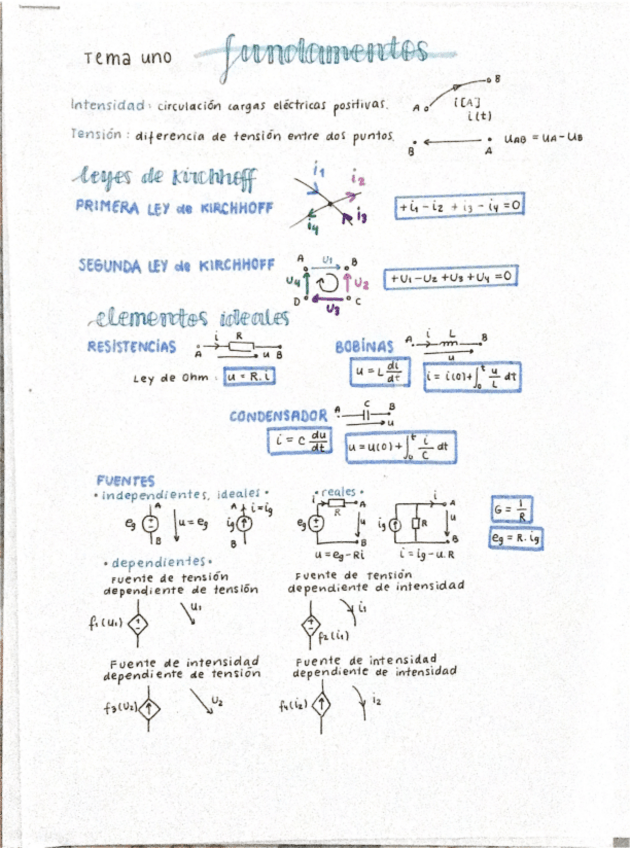 Tema uno fundamentos
Intensidad: circulación cargas eléctricas positivas. A B i[A] i(t)
Tensión: diferencia de tensión entre dos puntos. B A uAB = uA - uB
leyes de Kirchhoff
i1 i2
PRIMERA LEY de KIRCHHOFF +i1 - i2 + i3 - i4 = 0
i4 i3
A U1 B
SEGUNDA LEY de KIRCHHOFF U4 U2 +U1 - U2 + U3 + U4 = 0
D U3 C
elementos ideales
RESISTENCIAS A i R u B
BOBINAS A i L B u
Ley de Ohm: u = R.i
u = L di/dt
i = i(0) + ∫₀ᵗ u/L dt
CONDENSADOR A C B u
i = C du/dt
u = u(0) + ∫₀ᵗ i/C dt
FUENTES
• independientes, ideales •
• reales •
A eg B u = eg
A i = ig ig B
i R A eg u B
i A ig R u B
G = 1/R
u = eg - Ri
i = ig - u.R
eg = R.ig
• dependientes •
Fuente de tensión
dependiente de tensión
f1(u1) u1
Fuente de Tensión
dependiente de intensidad
f2(i1) i1
Fuente de intensidad
dependiente de tensión
f3(u2) u2
Fuente de intensidad
dependiente de intensidad
f4(i2) i2